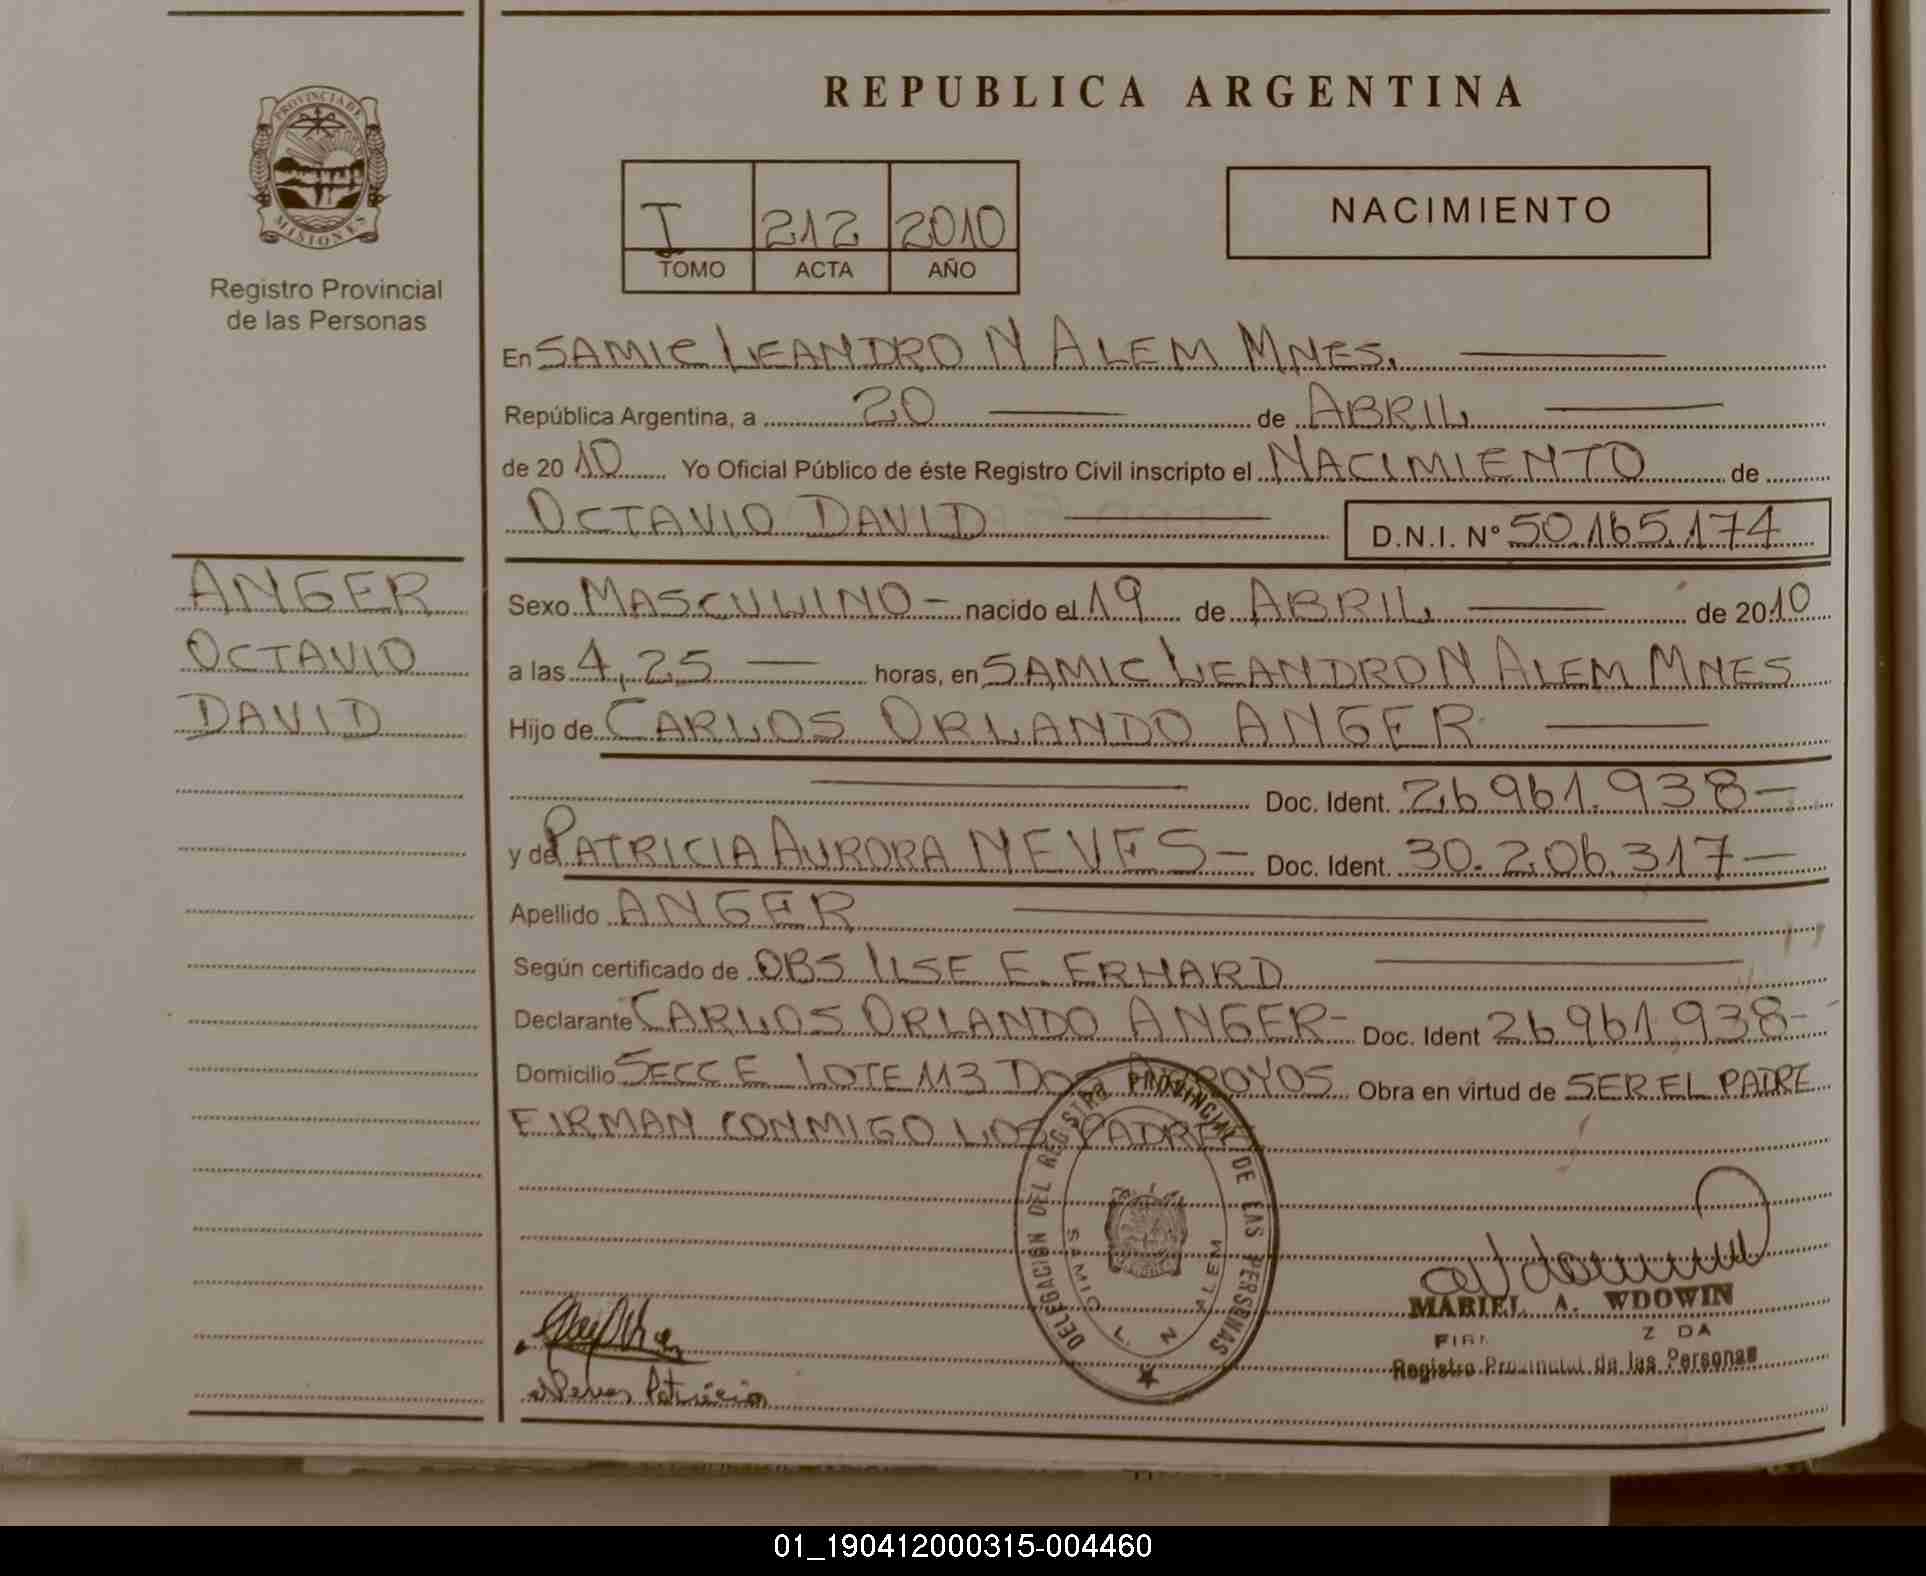 REPUBLICA ARGENTINA
PROVINCIA DE
MISIONES
Registro Provincial
de las Personas
I 212 2010
TOMO ACTA AÑO
NACIMIENTO
En SAMIC LEANDRO N ALEM MNES.
República Argentina, a 20 de ABRIL
de 2010 Yo Oficial Público de éste Registro Civil inscripto el NACIMIENTO de
OCTAVIO DAVID D.N.I. N° 50.165.174
ANGER
OCTAVIO
DAVID
Sexo MASCULINO - nacido el 19 de ABRIL de 2010
a las 4,25 horas, en SAMIC LEANDRO N ALEM MNES
Hijo de CARLOS ORLANDO ANGER
Doc. Ident. 26961.938-
y de PATRICIA AURORA NEVES - Doc. Ident. 30.206.317-
Apellido ANGER
Según certificado de OBS ILSE E. ERHARD
Declarante CARLOS ORLANDO ANGER - Doc. Ident 26961,938-
Domicilio SECC E LOTE 113 DOS ARROYOS Obra en virtud de SER EL PADRE
FIRMAN CONMIGO LOS PADRES
DELEGACION DEL REGISTRO PROVINCIAL DE LAS PERSONAS
SAMIC L. N. ALEM
MARIEL A. WDOWIN
Registro Provincial de las Personas
Neves Patricia
01_190412000315-004460